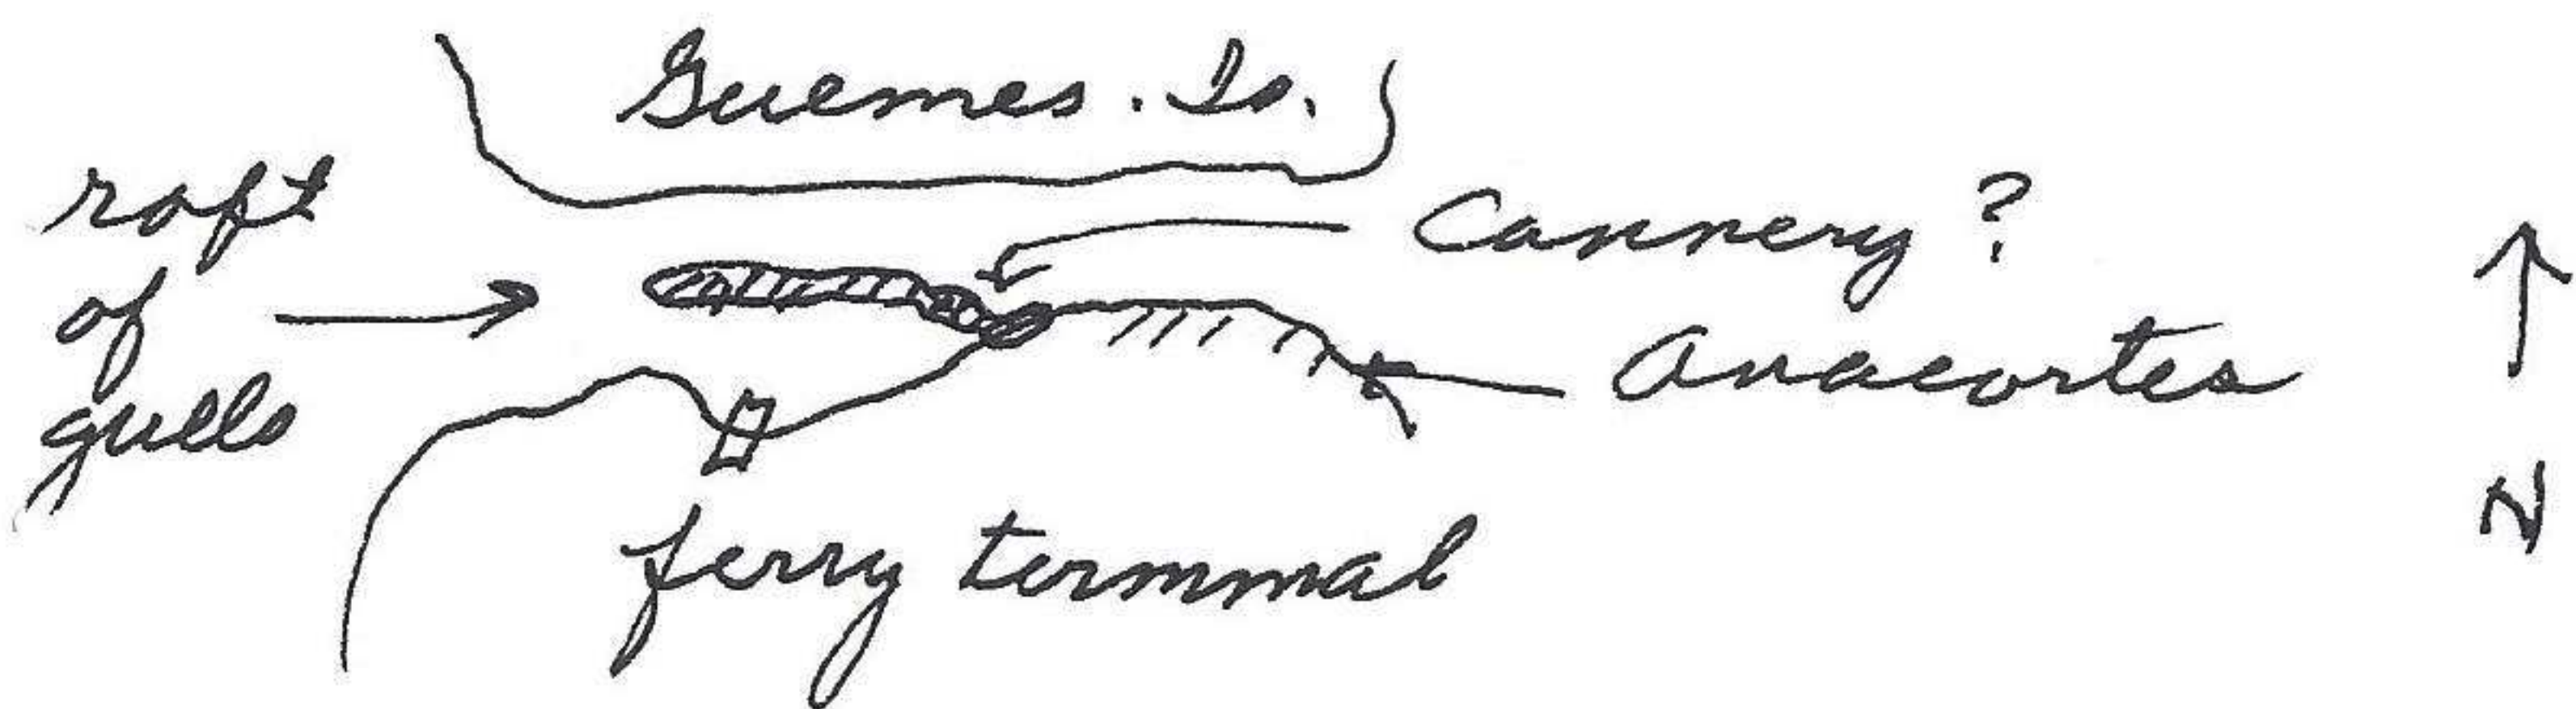 Guemes. Is.
raft
of
gulls
Cannery?
Anacortes
N
ferry terminal